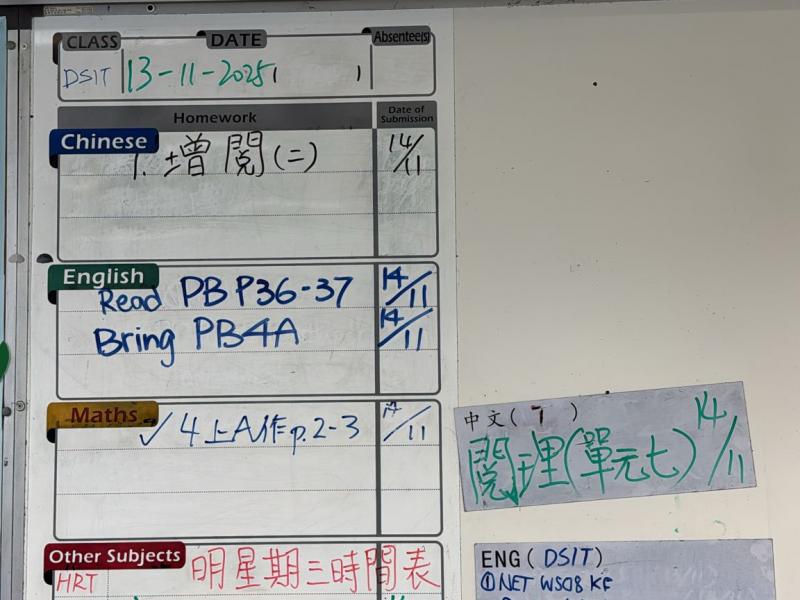 CLASS DATE Absentee(s)
DSIT 13-11-2025
Homework Date of Submission
Chinese
1. 增閱(二) 14/11
English
Read PB P36-37 14/11
Bring PB4A 14/11
Maths
✓ 4上A作p.2-3 14/11
Other Subjects
HRT 明星期三時間表
中文(7)
閱理(單元七) 14/11
ENG(DSIT)
①NET WS08 KF